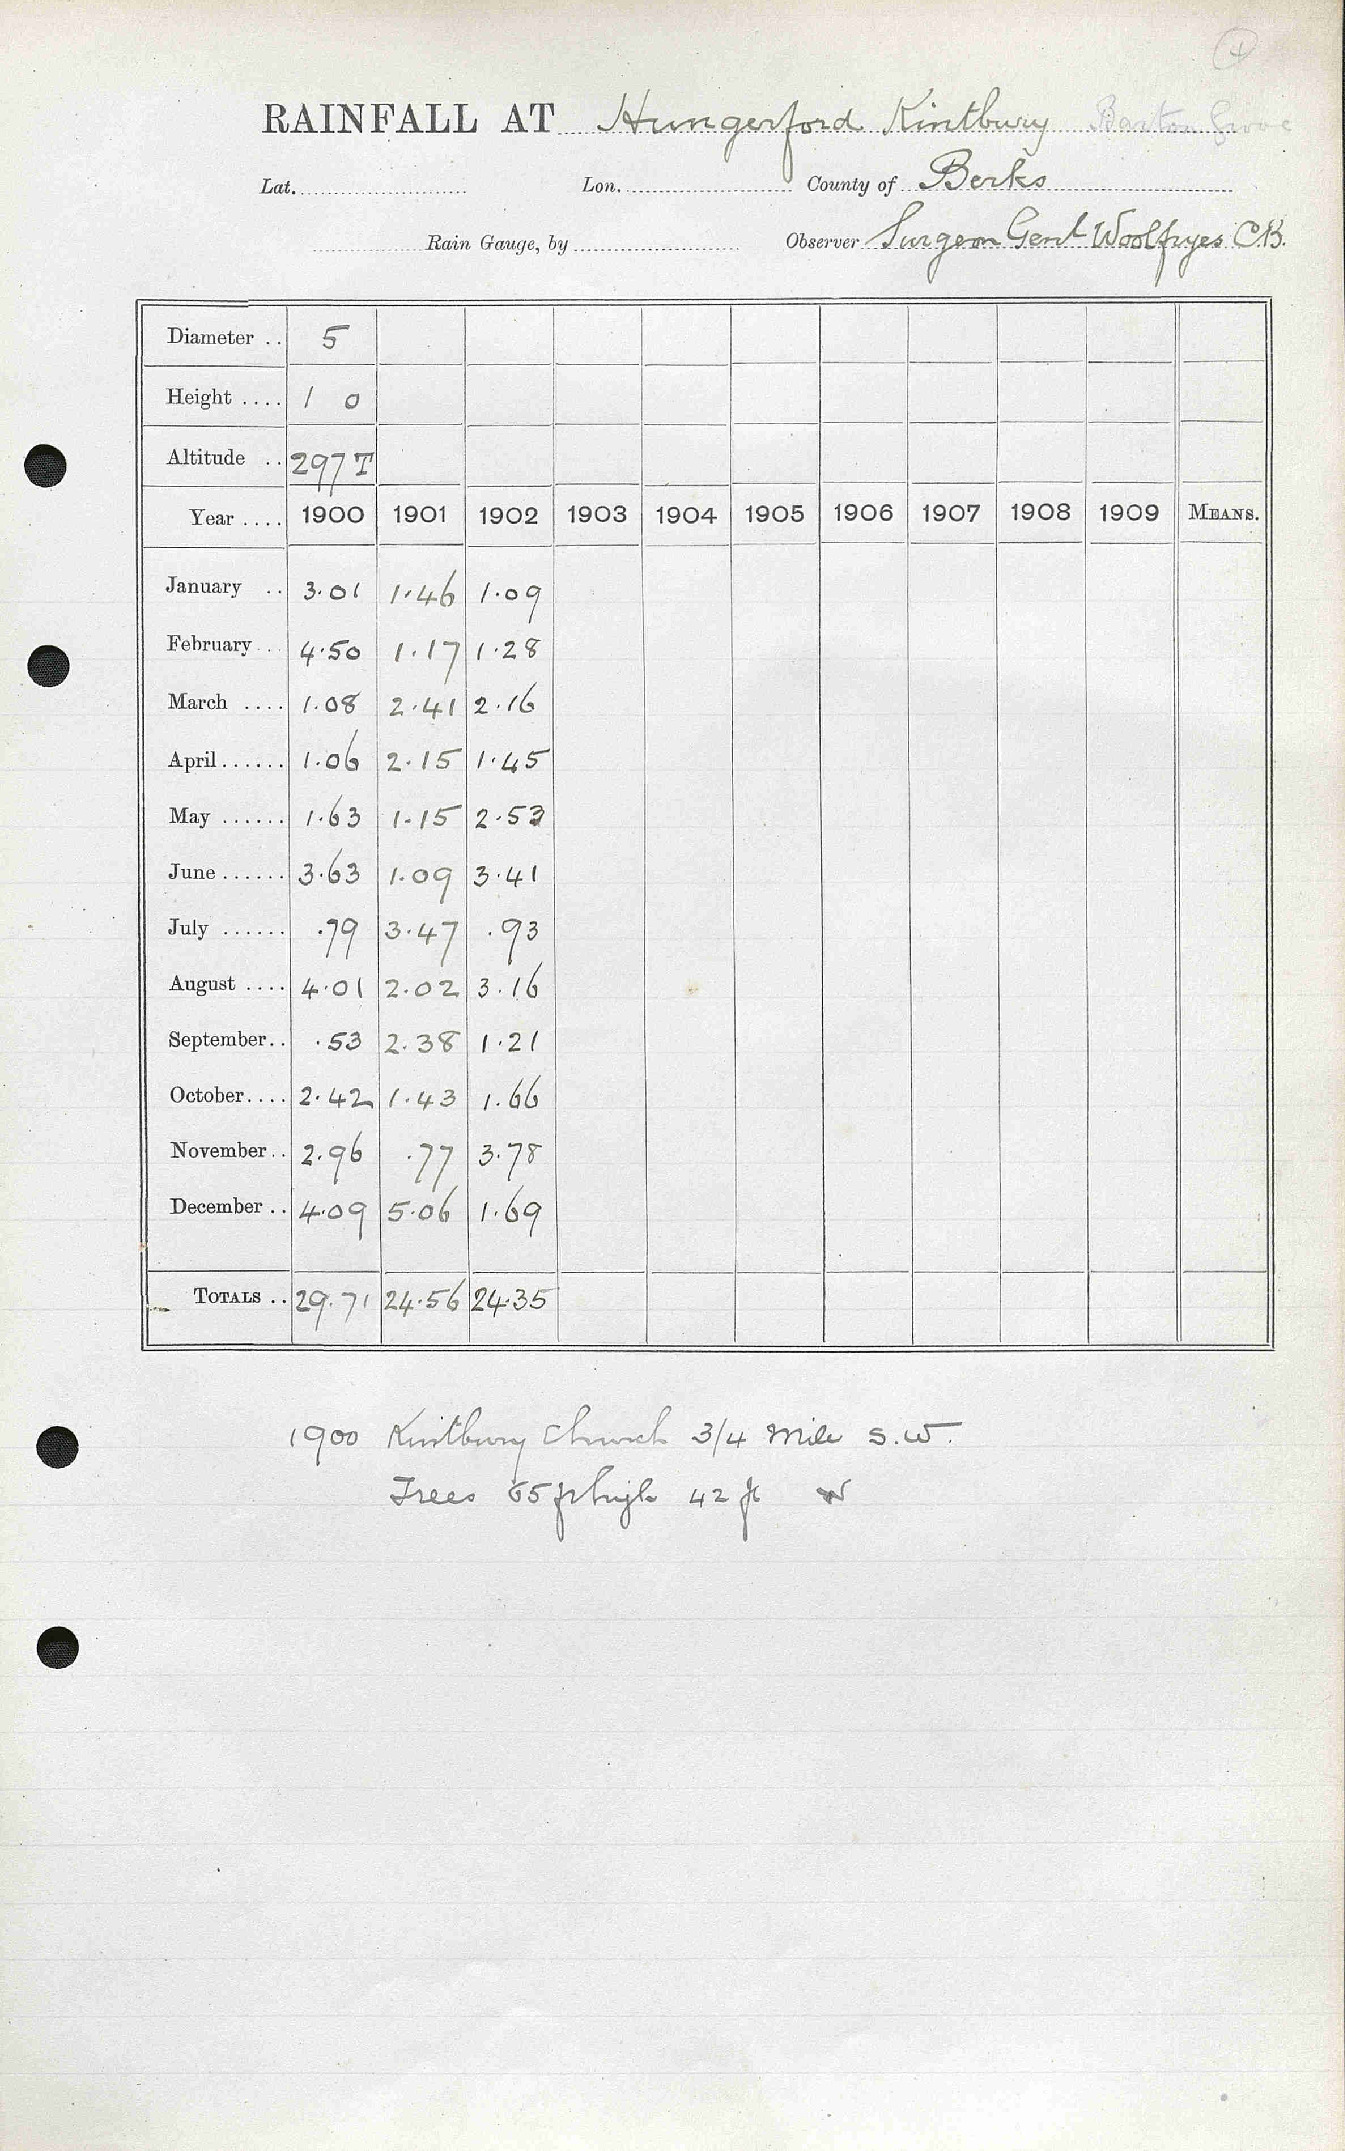 4
RAINFALL AT Hungerford Kintbury Barton Grove
Lat. Lon. County of Berks
Rain Gauge, by Observer Surgeon Genl Woolfryes C.B.
Diameter .. 5
Height .... 1 0
Altitude .. 297 T
Year .... 1900 1901 1902 1903 1904 1905 1906 1907 1908 1909 MEANS.
January .. 3.01 1.46 1.09
February .. 4.50 1.17 1.28
March .... 1.08 2.41 2.16
April...... 1.06 2.15 1.45
May ...... 1.63 1.15 2.53
June ...... 3.63 1.09 3.41
July ...... .79 3.47 .93
August .... 4.01 2.02 3.16
September.. .53 2.38 1.21
October.... 2.42 1.43 1.66
November.. 2.96 .77 3.78
December .. 4.09 5.06 1.69
TOTALS .. 29.71 24.56 24.35
1900 Kintbury Church 3/4 Mile S.W.
Trees ft high 42 ft W